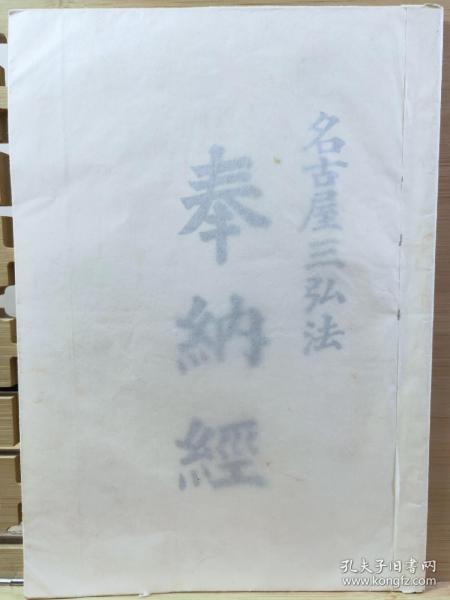 名古屋三弘法
奉納經
孔夫子旧书网
www.kongfz.com